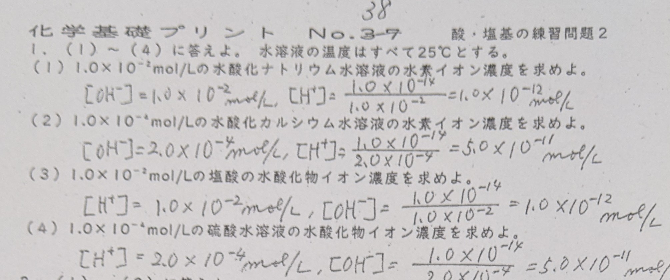 38
化学基礎プリント No.3-7 酸・塩基の練習問題2
1.(1)~(4)に答えよ。 水溶液の温度はすべて25℃とする。
(1)1.0×10⁻²mol/Lの水酸化ナトリウム水溶液の水素イオン濃度を求めよ。
[OH⁻]=1.0×10⁻²mol/L, [H⁺]=1.0×10⁻¹⁴/1.0×10⁻²=1.0×10⁻¹²mol/L
(2)1.0×10⁻⁴mol/Lの水酸化カルシウム水溶液の水素イオン濃度を求めよ。
[OH⁻]=2.0×10⁻⁴mol/L, [H⁺]=1.0×10⁻¹⁴/2.0×10⁻⁴=5.0×10⁻¹¹mol/L
(3)1.0×10⁻²mol/Lの塩酸の水酸化物イオン濃度を求めよ。
[H⁺]=1.0×10⁻²mol/L, [OH⁻]=1.0×10⁻¹⁴/1.0×10⁻²=1.0×10⁻¹²mol/L
(4)1.0×10⁻⁴mol/Lの硫酸水溶液の水酸化物イオン濃度を求めよ。
[H⁺]=2.0×10⁻⁴mol/L, [OH⁻]=1.0×10⁻¹⁴/2.0×10⁻⁴=5.0×10⁻¹¹mol/L